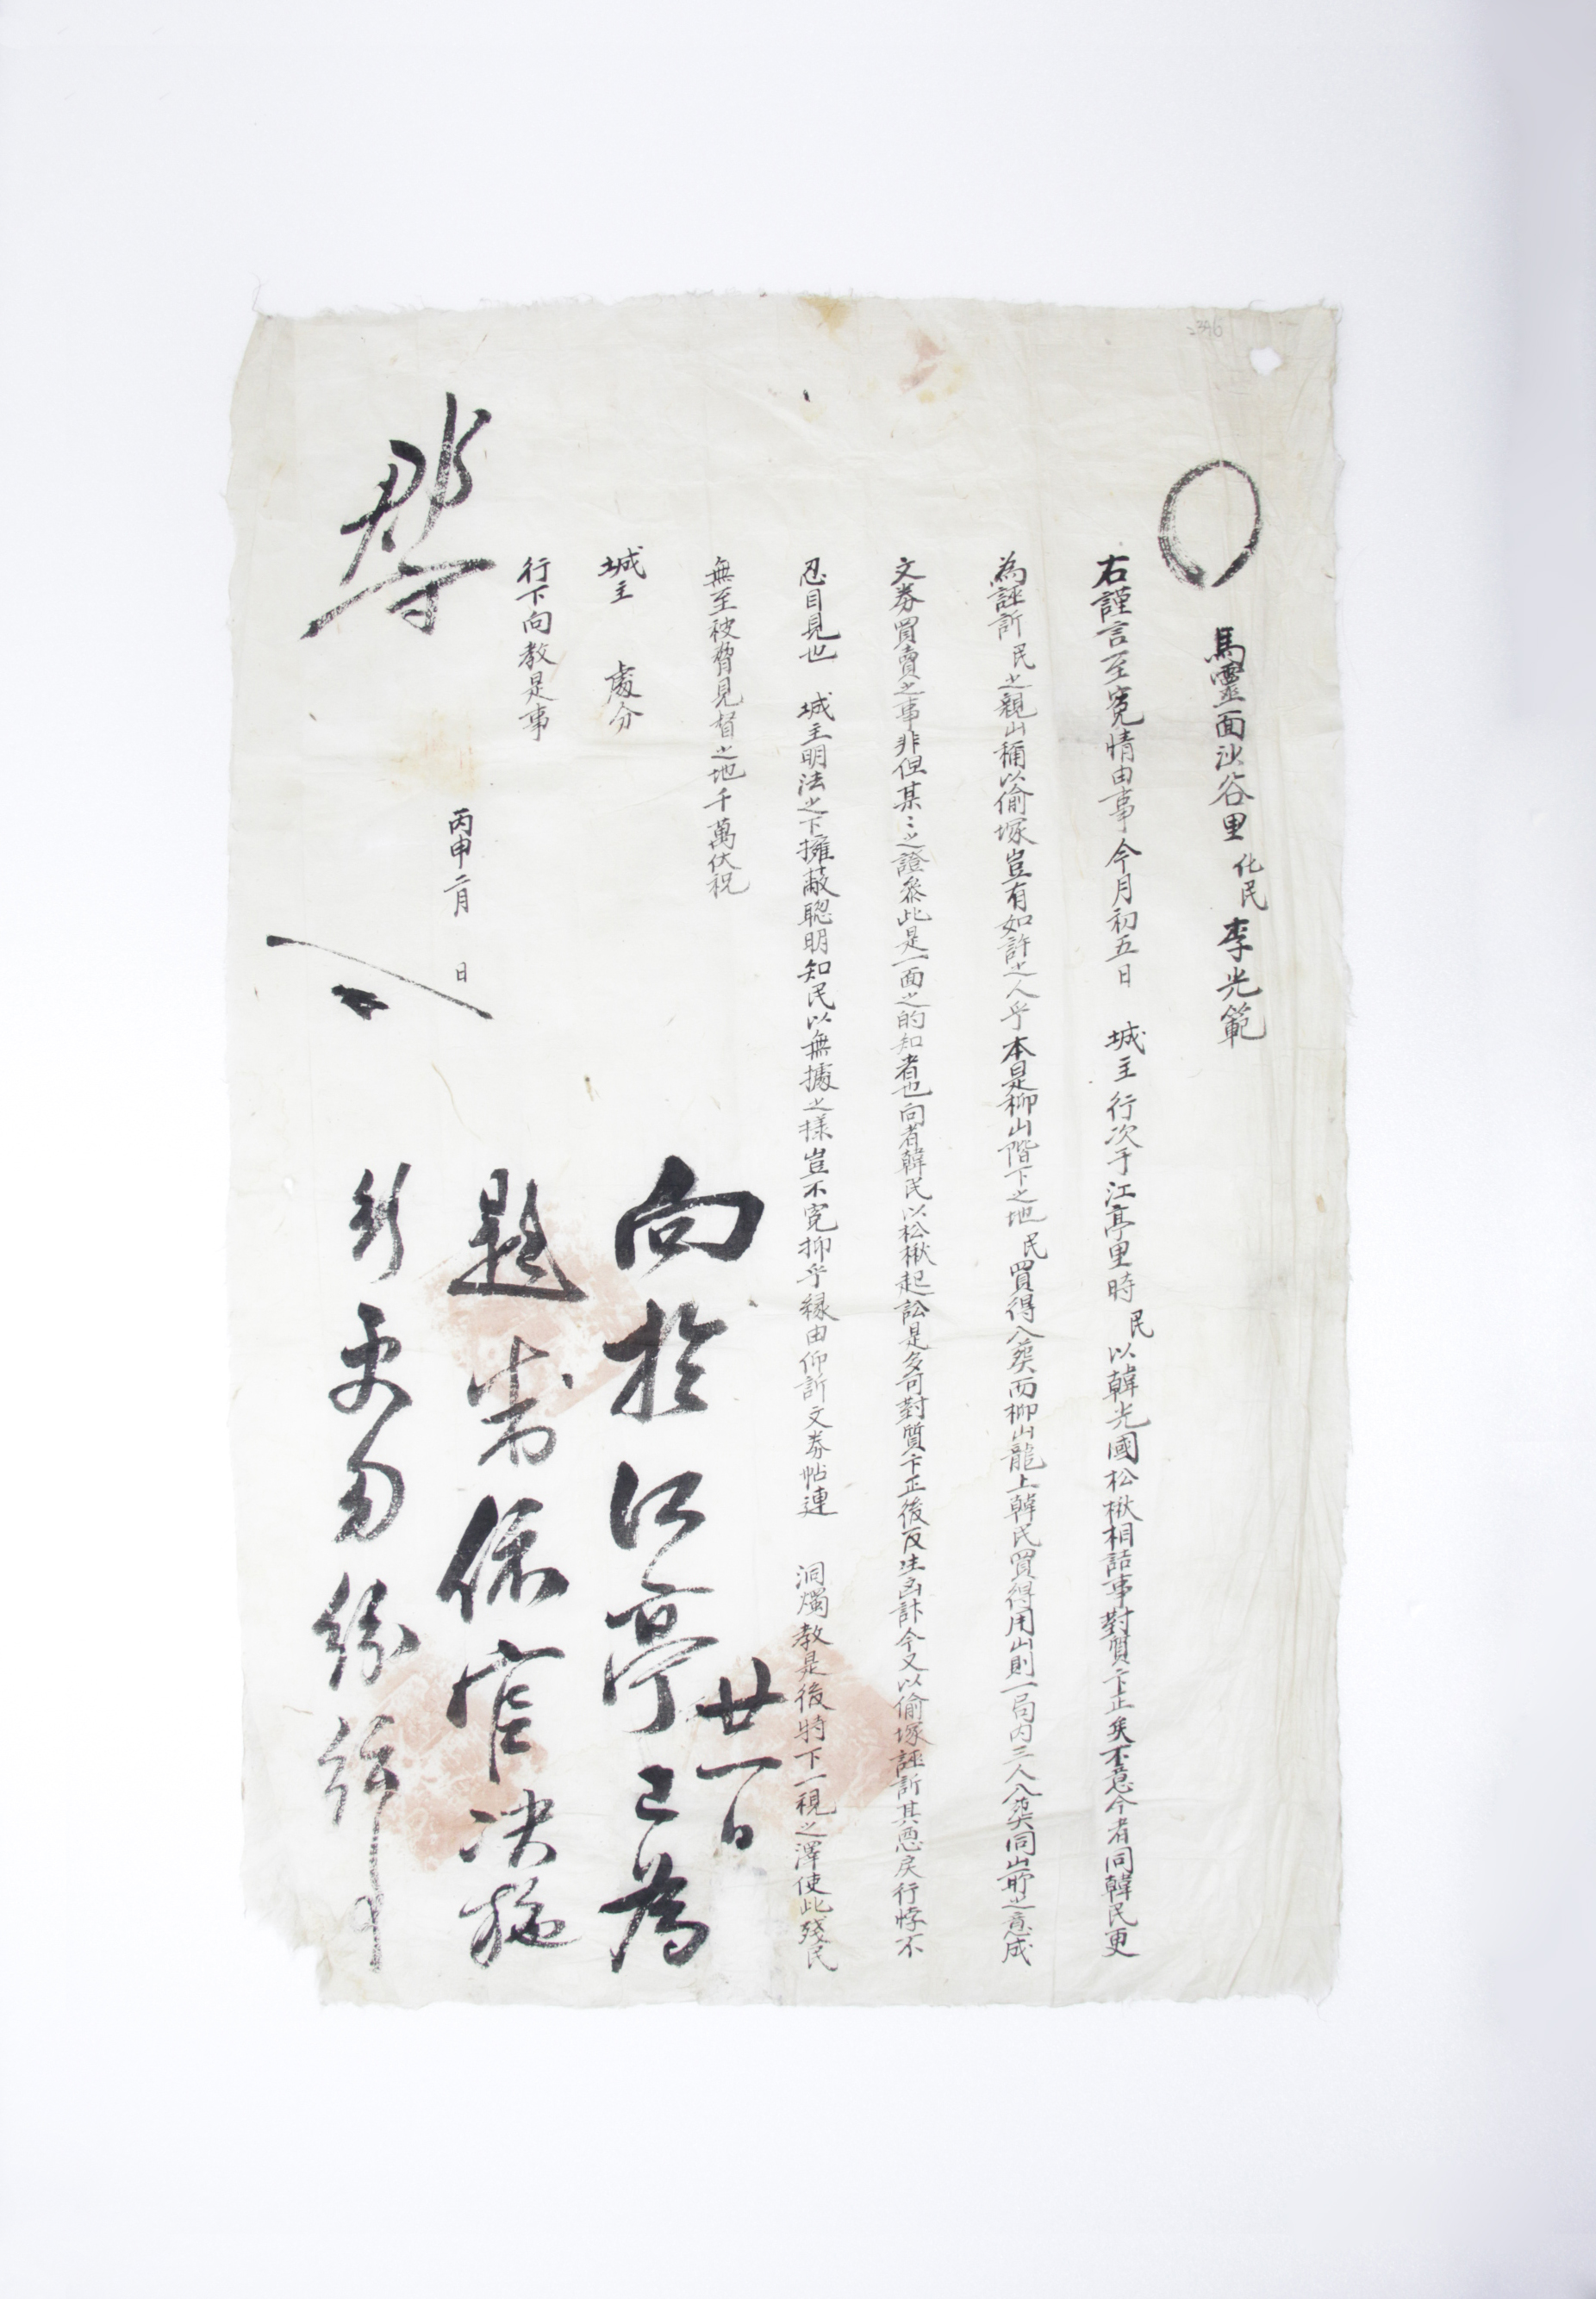 2396
馬靈面沙谷里 化民 李光範
右謹言至寃情由事今月初五日 城主行次于江亭里時 民以韓光國松楸相詰事對質卞正矣不意今者同韓民更
為誣訴 民之親山稱以偷塚豈有如許之人乎本是柳山階下之地 民買得入葬而柳山龍上韓民買得用山則一局內三人入葬同山所之意成
文券買賣之事非但某〻之證參此是一面之的知者也向者韓民以松楸起訟是多可對質卞正後反生凶計今又以偷塚誣訴其悪戾行悖不
忍目見也 城主明法之下擁蔽聡明知民以無據之樣豈不寃抑乎緣由仰訴文券帖連 洞燭教是後特下一視之澤使此殘民
無至被脅見督之地千萬伏祝
城主 處分
行下向教是事
丙申二月 日
郡守
向於江亭已為
題 依官决施
更勿紛紜
廿一日